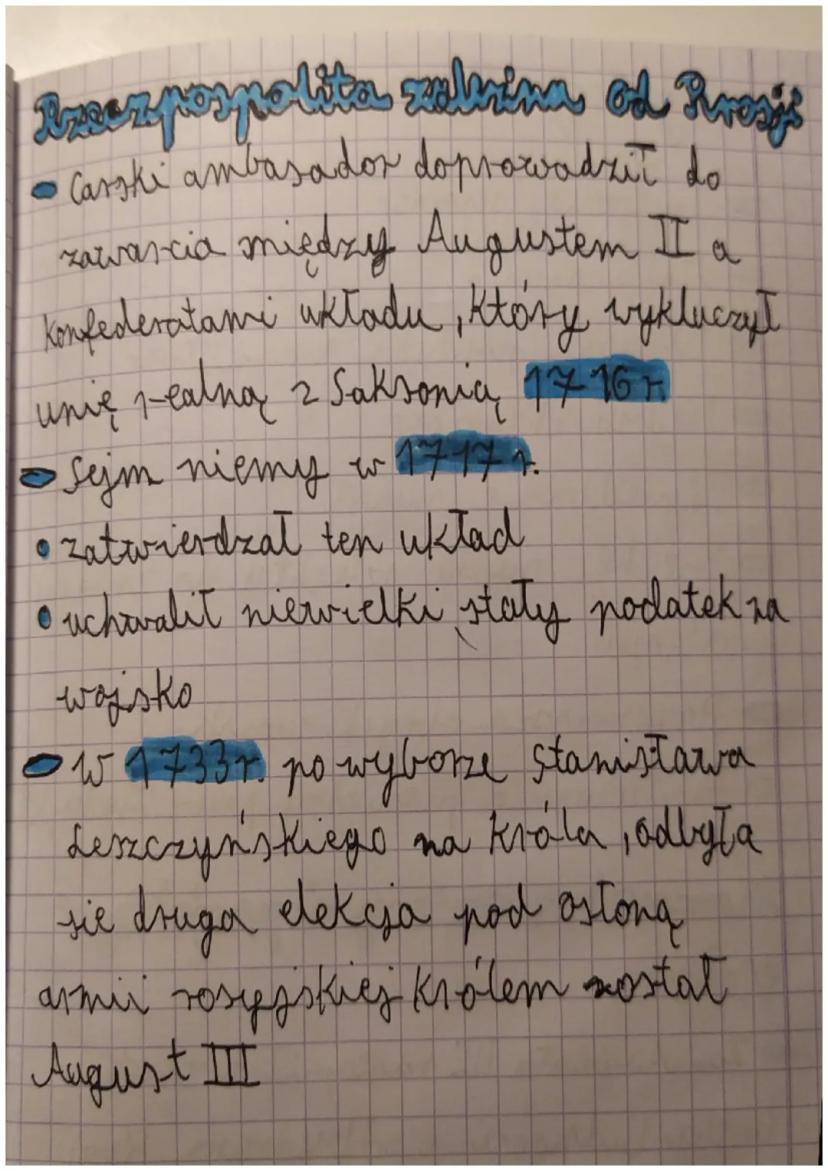 Rzeczpospolita zależna od Rosji
Carski ambasador doprowadził do
zawarcia między Augustem II a
konfederatami układu, który wykluczył
unię realną z Saksonią 1716 r.
Sejm niemy w 1717 r.
zatwierdzał ten układ
uchwalił niewielki stały podatek na
wojsko
W 1733r. po wyborze Stanisława
Leszczyńskiego na króla, odbyła
sie druga elekcja pod osłoną
armii rosyjskiej królem został
August III